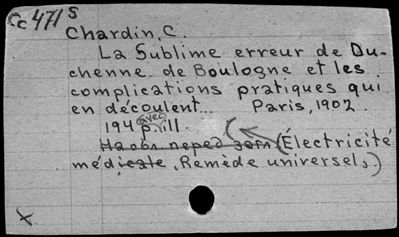 Cc 471 S
Chardin, C.
La Sublime erreur de Du-
chenne de Boulogne et les
complications pratiques qui
en découlent. Paris, 1902.
194 p. avec ill.
(Électricité
médicale, Remède universel,)